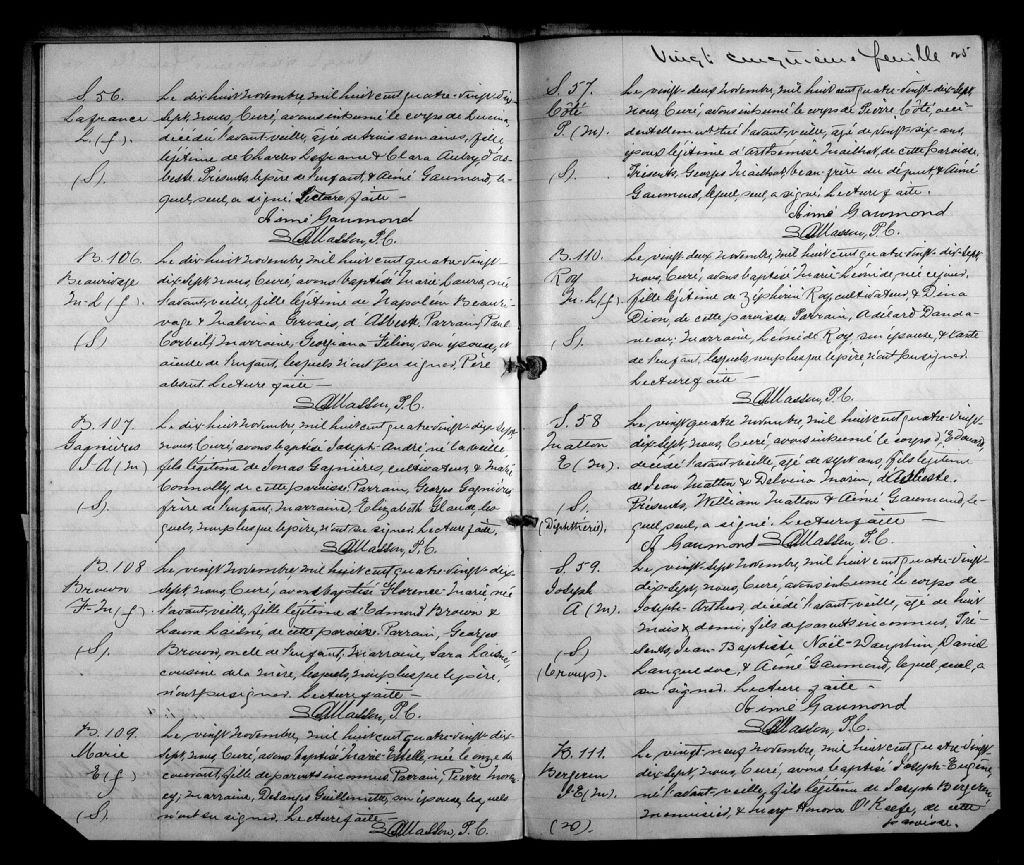 S. 56.
Lafrance
L. (f).
(S).
Le dix huit novembre, mil huit cent quatre-vingt dix
sept, nous, Curé, avons inhumé le corps de Laura,
décédée l'avant-veille, âgée de trois semaines, fille
légitime de Charles Lafrance & Clara Aubry d'As-
beste. Présents, le père de l'enfant, & Aimé Gaumond, le-
quel, seul, a signé. Lecture faite —
Aimé Gaumond
Masson, P.C.
B. 106.
Beaurivage
M-L (f)
(S)
Le dix huit novembre, mil huit cent quatre-vingt-
dix-sept, nous, Curé, avons baptisé Marie Laura, née
l'avant-veille, fille légitime de Napoléon Beauri-
vage & Malvina Gervais, d'Asbeste. Parrain, Paul
Corbeil, marraine, Georgiana Filion, son épouse, et
aïeule de l'enfant, lesquels n'ont pu signer. Père
absent. Lecture faite —
Masson, P.C.
B. 107.
Gagnières
J A (m)
(S).
Le dix huit novembre mil huit cent quatre-vingt-dix-sept
nous, Curé, avons baptisé Joseph-André né la veille,
fils légitime de Jonas Gagnières, cultivateur, & Marie
Connolly, de cette paroisse. Parrain, Georges Gagnières
frère de l'enfant, marraine, Elizabeth Glaude, les-
quels, non plus que le père, n'ont su signer. Lecture faite.
Masson, P.C.
B. 108
Brown
F. M (f)
(S).
Le vingt novembre, mil huit cent quatre-vingt-dix-
sept, nous, Curé, avons baptisé Florence Marie, née
l'avant-veille, fille légitime d'Edmond Brown &
Laura Laisné, de cette paroisse. Parrain, Georges
Brown, oncle de l'enfant, marraine, Sara Laisné,
cousine de la mère, lesquels, non plus que le père,
n'ont pu signer. Lecture faite —
Masson, P.C.
B. 109.
Marie
E (f)
(S).
Le vingt novembre, mil huit cent quatre-vingt-dix-
sept, nous, Curé, avons baptisé Marie-Estelle, née le onze du
courant, fille de parents inconnus. Parrain, Pierre
marraine, Desanges Guillemette, son épouse, lesquels
n'ont su signer. Lecture faite —
Masson, P.C.
Vingt cinquième feuille 25
S. 57.
Côté
P. (m).
(S).
Le, vingt-deux novembre, mil huit cent quatre-vingt-dix-sept
nous, Curé, avons inhumé le corps de Pierre Côté, acci-
dentellement tué l'avant-veille, âgé de vingt-six ans,
époux légitime d'Arthémise Mailhot, de cette paroisse.
Présents, Georges Mailhot, beau-frère du défunt, & Aimé
Gaumond, lequel, seul, a signé. Lecture faite.
Aimé Gaumond
Masson, P.C.
B. 110.
Roy
M. L (f)
(S).
Le, vingt deux novembre, mil huit cent quatre-vingt dix-sept
nous, Curé, avons baptisé Marie Léonide, née ce jour,
fille légitime de Zéphirin Roy, cultivateur, & Dina
Dion, de cette paroisse. Parrain, Adélard Danda-
neau, marraine, Léonide Roy, son épouse, & tante
de l'enfant, lesquels, non plus que le père, n'ont pu signer.
Lecture faite —
Masson, P.C.
S. 58
Matton
E (m)
(S).
(Diphthérie).
Le, vingt quatre novembre, mil huit cent quatre-vingt-
dix-sept, nous, Curé, avons inhumé le corps d'Edouard,
décédé l'avant-veille, âgé de sept ans, fils légitime
de Jean Matton & Delvina Morin, d'Asbeste.
Présents, William Matton & Aimé Gaumond, le-
quel, seul, a signé. Lecture faite —
A Gaumond Masson, P.C.
S. 59.
Joseph
A (m).
(S)
(Croup).
Le, vingt-sept novembre, mil huit cent quatre-vingt-
dix-sept, nous, Curé, avons inhumé le corps de
Joseph-Arthur, décédé l'avant-veille, âgé de huit
mois & demi, fils de parents inconnus. Pré-
sents, Jean Baptiste Noël-Dauphin, Daniel
Languedoc, & Aimé Gaumond, lequel, seul, a
su signer. Lecture faite —
Aimé Gaumond
Masson, P.C.
B. 111.
Bergeron
J-E (m).
(20).
Le, vingt-neuf novembre, mil huit cent quatre-vingt
dix-sept, nous, Curé, avons baptisé Joseph-Eugène,
né l'avant-veille, fils légitime de Joseph Bergeron,
menuisier, & Mary Anora O'Keefe, de cette
paroisse.